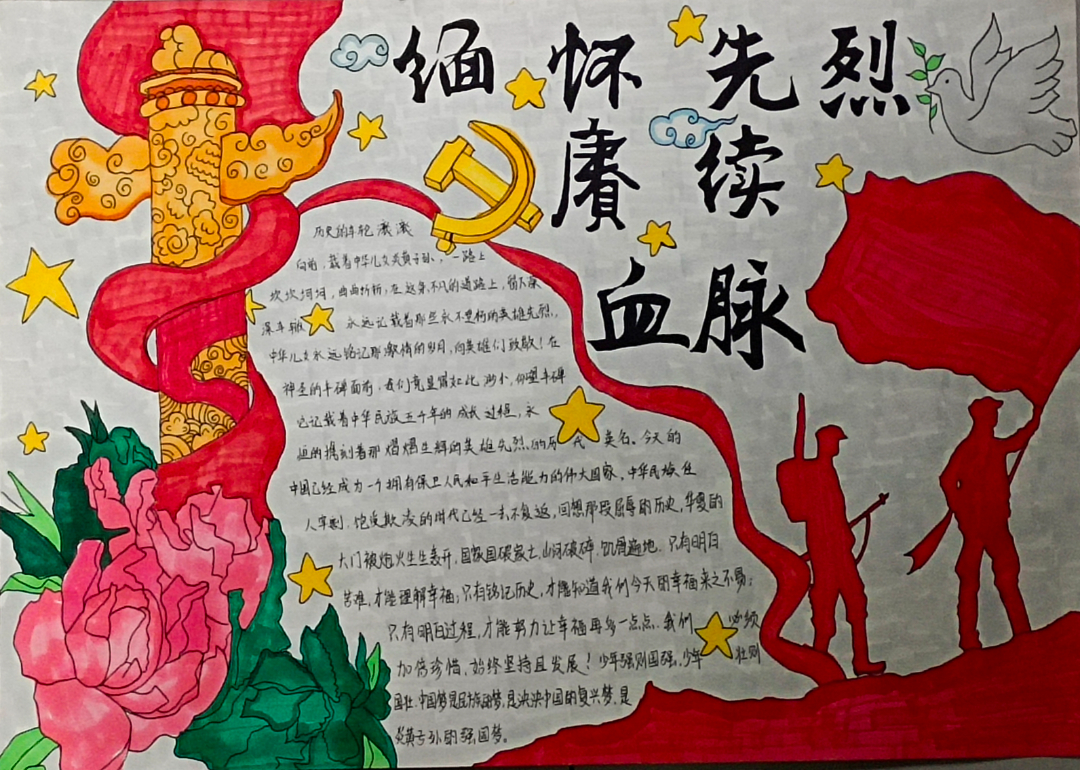 缅怀先烈
赓续
血脉
历史的车轮滚滚
向前,载着中华儿女炎黄子孙,一路上
坎坎坷坷,曲曲折折,在这条不凡的道路上,留下深
深车辙 永远记载着那些永不坚朽的英雄先烈,
中华儿女永远铭记那激情的岁月,向英雄们致敬!在
神圣的丰碑面前,我们竟显得如此渺小,仰望丰碑
它记载着中华民族五千年的成长过程,永
远的携刻着那熠熠生辉的英雄先烈们的历代英名。今天的
中国已经成为一个拥有保卫人民和平生活能力的伟大国家,中华民族任
人宰割,饱受欺凌的时代已经一去不复返,回想那段屈辱的历史,华夏的
大门被炮火生生轰开,国家国破家亡,山河破碎,饥骨遍地。只有明白
苦难,才能理解幸福;只有铭记历史,才能知道我们今天的幸福来之不易;
只有明白过程,才能努力让幸福再多一点点。我们必须
加倍珍惜,始终坚持且发展!少年强则国强,少年壮则
国壮,中国梦是民族的梦,是泱泱中国的复兴梦,是
炎黄子孙的强国梦。